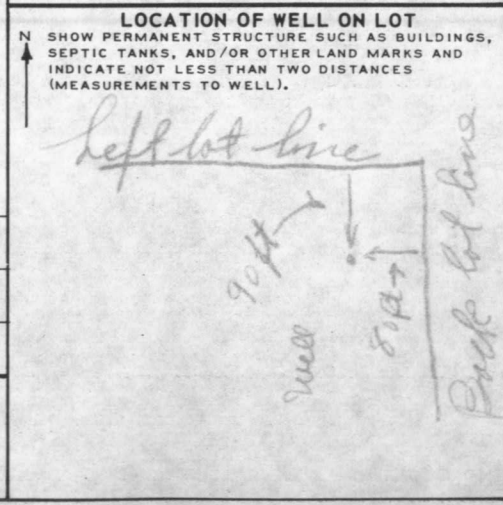 LOCATION OF WELL ON LOT
N SHOW PERMANENT STRUCTURE SUCH AS BUILDINGS,
SEPTIC TANKS, AND/OR OTHER LAND MARKS AND
INDICATE NOT LESS THAN TWO DISTANCES
(MEASUREMENTS TO WELL).
Left lot line
90 ft
Well
80 ft
Back lot line